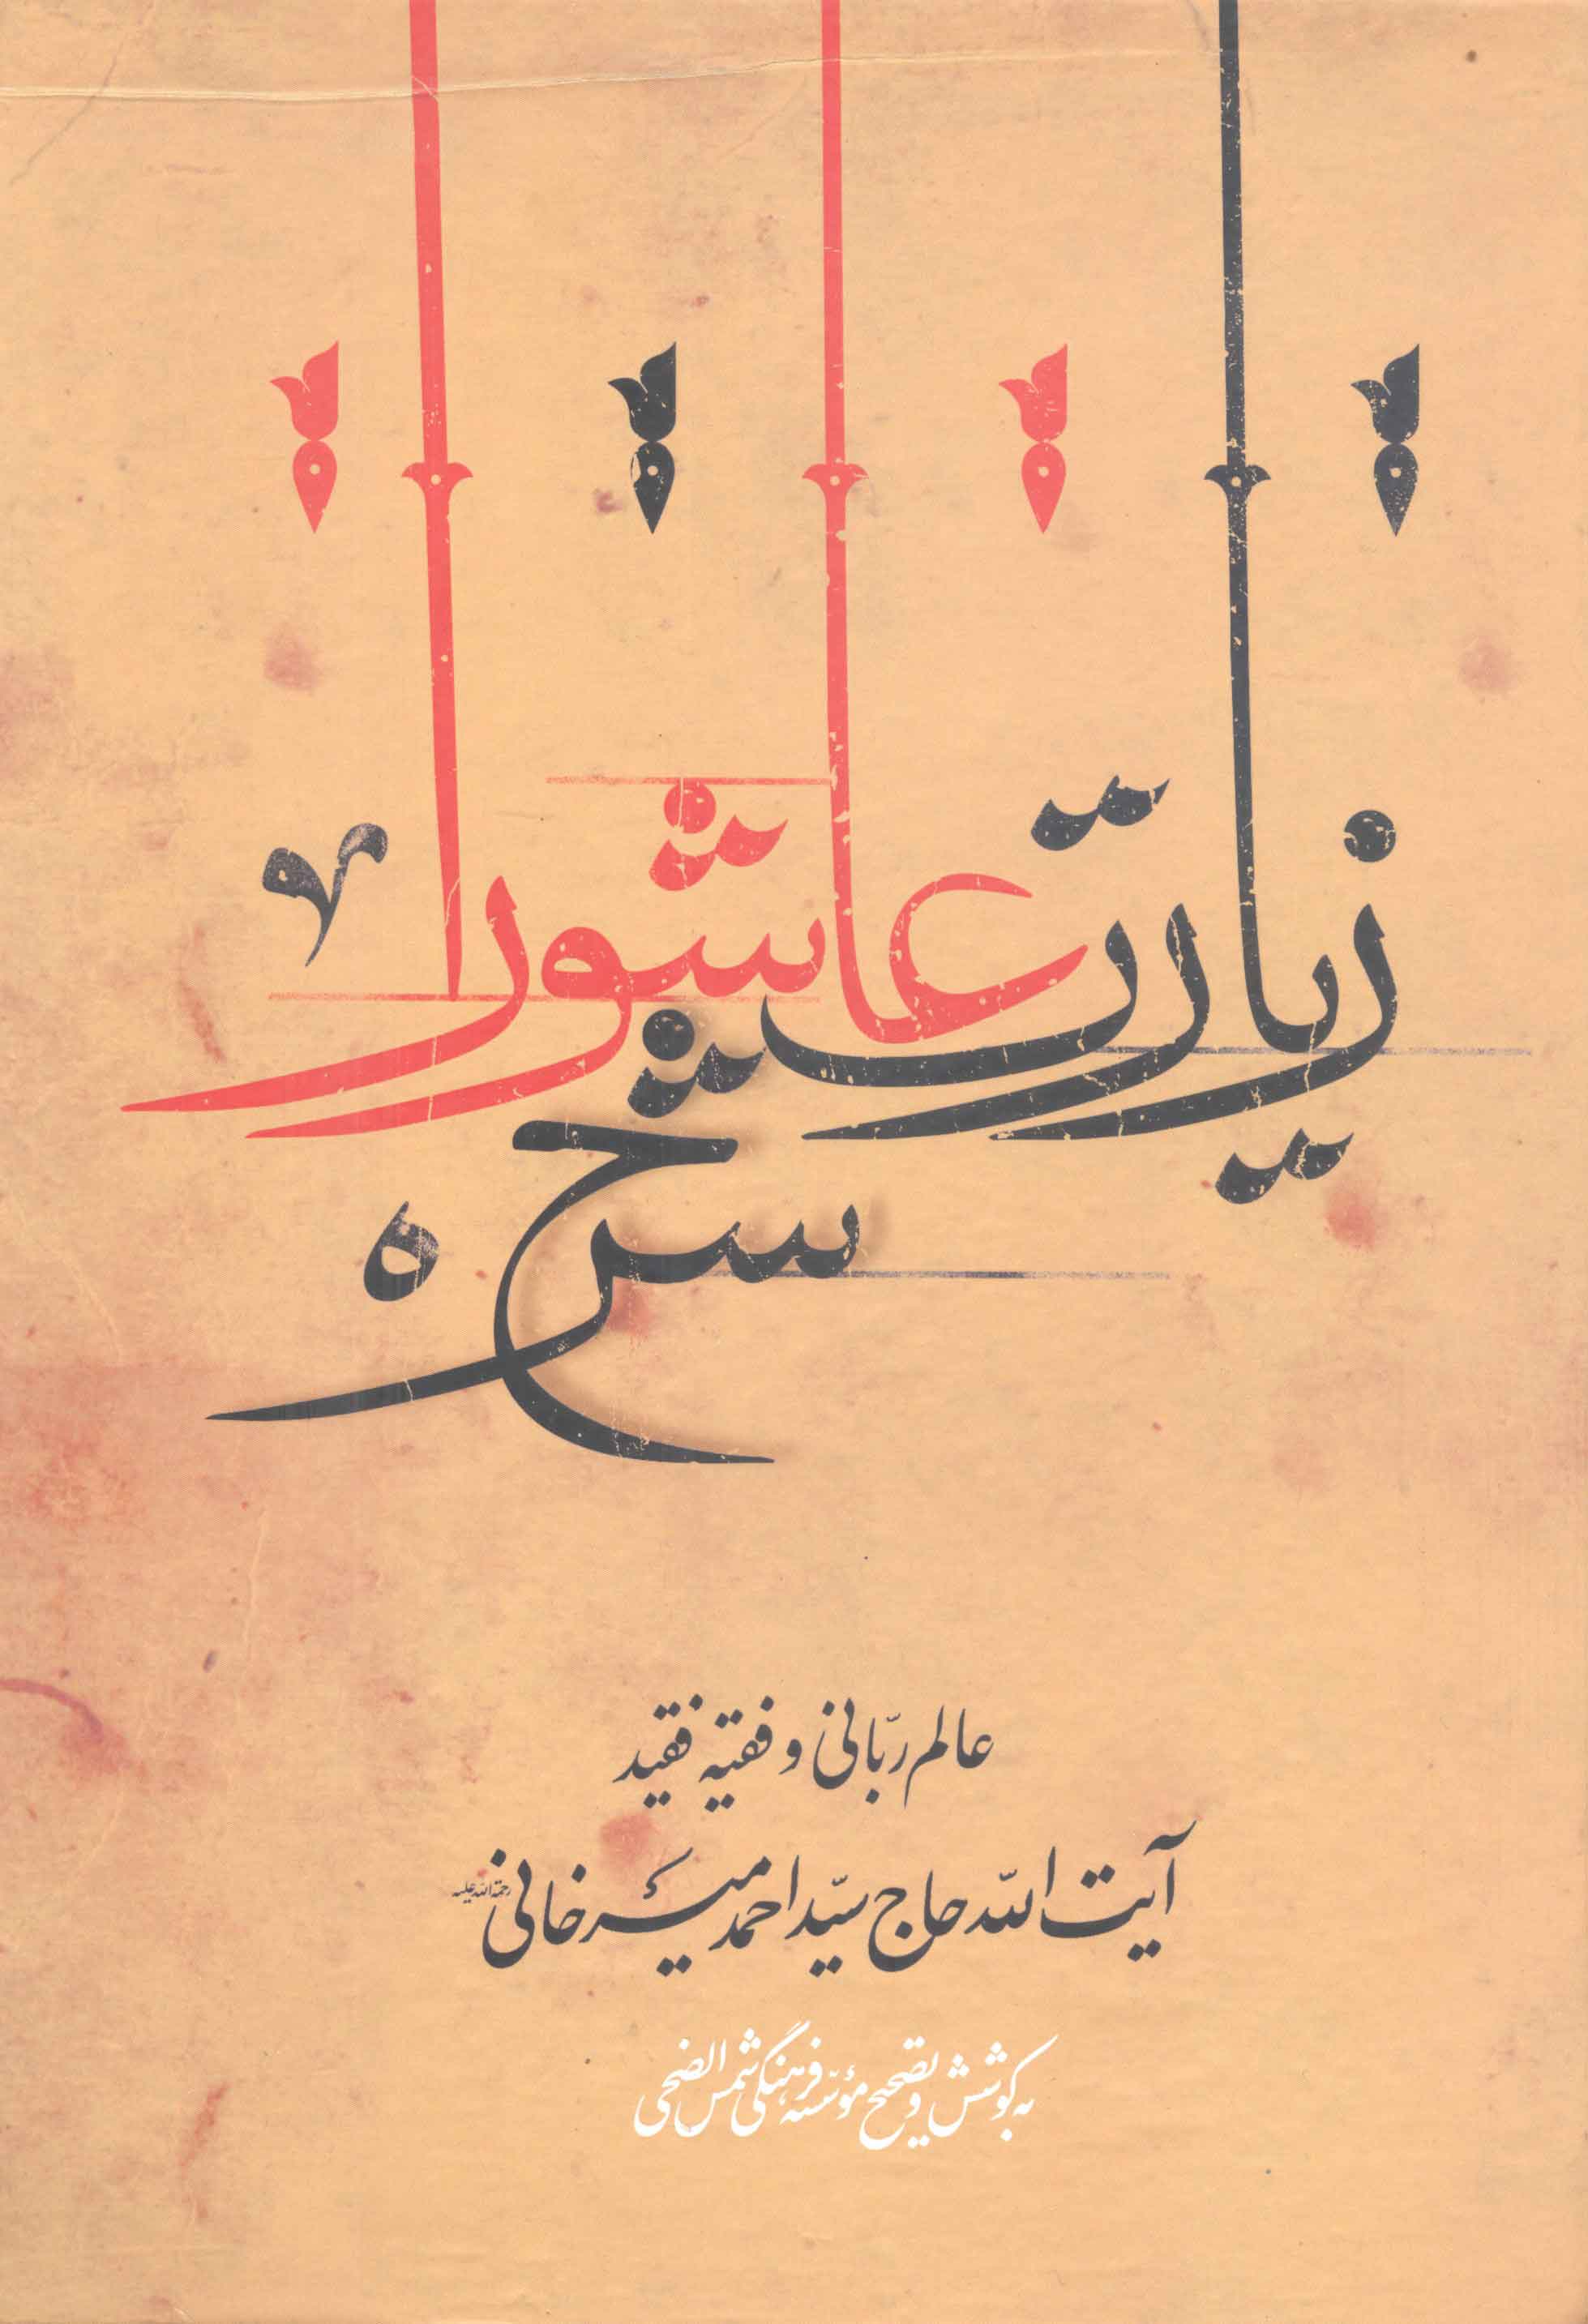 شرح
زیارت عاشورا
عالم ربّانی و فقیه فقید
آیت الله حاج سیّد احمد میرخانی رحمة الله علیه
به کوشش و تصحیح مؤسّسه فرهنگی شمس الضحی